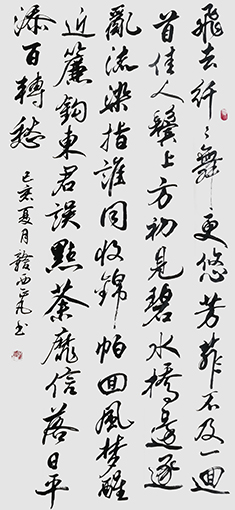 飛去纤纤舞更悠芳菲不及一迴
首佳人鬓上方初見碧水橋邊逐
亂流染指誰同收錦帕回風梦醒
近簾鈎東君誤點荼蘼信落日平
添百轉愁
己亥夏月赣西正凡书